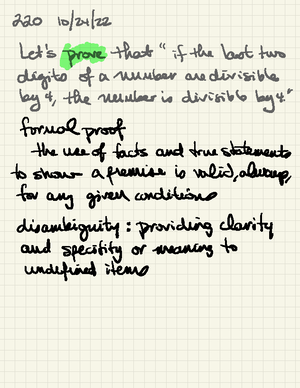 220 10/24/22
Let's prove that "if the last two
digits of a number are divisible
by 4, the number is divisible by 4"
formal proof
the use of facts and true statements
to show a premise is valid, always,
for any given conditions
disambiguity: providing clarity
and specifity or meaning to
undefined items